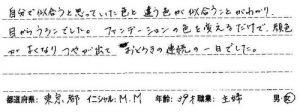 自分で似合うと思っていた色と違う色が似合うことがわかり
目がうろこでした。ファンデーションの色を変えるだけで、顔色
がよくなりつやが出ておどろきの連続の一日でした。
都道府県: 東京都 イニシャル: M.M 年齢: 39才 職業: 主婦 男・女